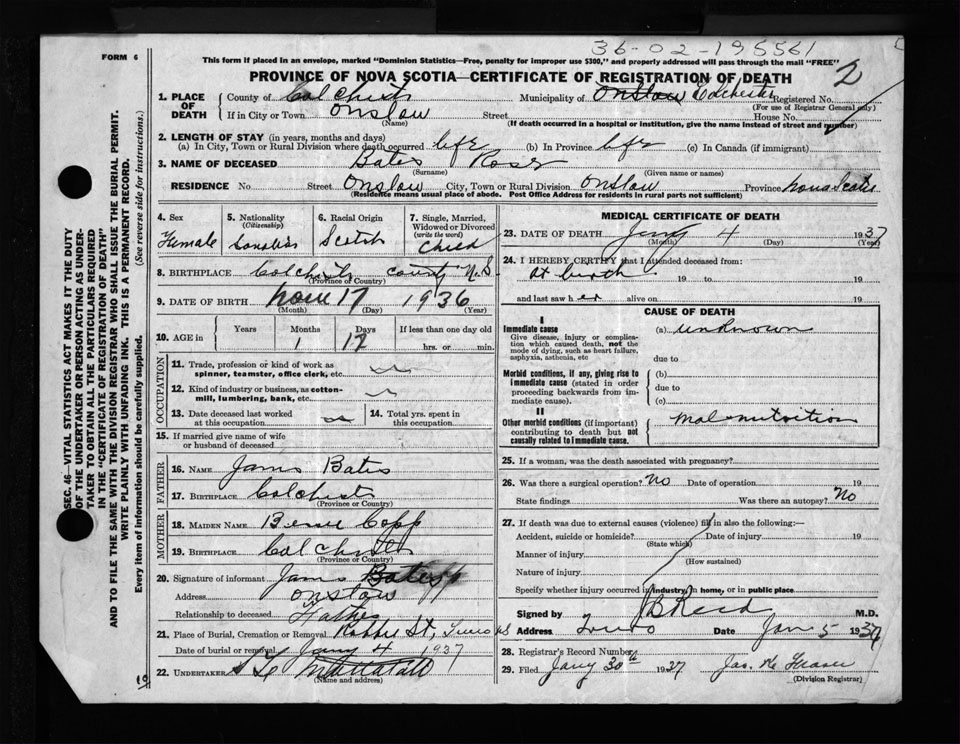 36-02-195561
FORM 6
This form if placed in an envelope, marked "Dominion Statistics—Free, penalty for improper use $300," and properly addressed will pass through the mail "FREE"
PROVINCE OF NOVA SCOTIA—CERTIFICATE OF REGISTRATION OF DEATH
2
1. PLACE OF DEATH County of Colchester Municipality of Onslow Colchester Registered No.
(For use of Registrar General only)
If in City or Town Onslow Street House No.
(Name) (If death occurred in a hospital or institution, give the name instead of street and number)
2. LENGTH OF STAY (in years, months and days)
(a) In City, Town or Rural Division where death occurred life (b) In Province life (c) In Canada (if immigrant)
3. NAME OF DECEASED Bates Rose
(Surname) (Given name or names)
RESIDENCE No Street Onslow City, Town or Rural Division Onslow Province Nova Scotia
(Residence means usual place of abode. Post Office Address for residents in rural parts not sufficient)
4. Sex 5. Nationality (Citizenship) 6. Racial Origin 7. Single, Married, Widowed or Divorced (write the word)
Female Canadian Scotch Child
8. BIRTHPLACE Colchester County N.S.
(Province or Country)
9. DATE OF BIRTH 17 1936
(Month) (Day) (Year)
10. AGE in Years Months Days If less than one day old
1 17 hrs. or min.
OCCUPATION
11. Trade, profession or kind of work as spinner, teamster, office clerk, etc.
12. Kind of industry or business, as cotton-mill, lumbering, bank, etc.
13. Date deceased last worked at this occupation 14. Total yrs. spent in this occupation
15. If married give name of wife or husband of deceased
FATHER
16. NAME James Bates
17. BIRTHPLACE Colchester
(Province or Country)
MOTHER
18. MAIDEN NAME Copp
19. BIRTHPLACE Colchester
(Province or Country)
20. Signature of informant James Bates
Address Onslow
Relationship to deceased Father
21. Place of Burial, Cremation or Removal St, Truro NS
Date of burial or removal Jany 4 1937
22. UNDERTAKER
(Name and address)
MEDICAL CERTIFICATE OF DEATH
23. DATE OF DEATH Jany 4 1937
(Month) (Day) (Year)
24. I HEREBY CERTIFY that I attended deceased from:
At birth 19 to 19
and last saw her alive on 19
CAUSE OF DEATH
I
Immediate cause (a) unknown
Give disease, injury or complication which caused death, not the mode of dying, such as heart failure, asphyxia, asthenia, etc
due to
Morbid conditions, if any, giving rise to immediate cause (stated in order proceeding backwards from immediate cause).
(b)
due to
(c)
II
Other morbid conditions (if important) contributing to death but not causally related to immediate cause.
Malnutrition
25. If a woman, was the death associated with pregnancy?
26. Was there a surgical operation? No Date of operation 19
State findings Was there an autopsy? No
27. If death was due to external causes (violence) fill in also the following:—
Accident, suicide or homicide? Date of injury 19
(State which)
Manner of injury
(How sustained)
Nature of injury
Specify whether injury occurred in industry, in home, or in public place
Signed by Reid M.D.
Address Truro Date Jan 5 1937
28. Registrar's Record Number
29. Filed Jany 30th 1937 Jas. Fraser
(Division Registrar)
SEC. 46—VITAL STATISTICS ACT MAKES IT THE DUTY
OF THE UNDERTAKER OR PERSON ACTING AS UNDER-
TAKER TO OBTAIN ALL THE PARTICULARS REQUIRED
IN THE "CERTIFICATE OF REGISTRATION OF DEATH"
AND TO FILE THE SAME WITH THE DIVISION REGISTRAR WHO SHALL ISSUE THE BURIAL PERMIT.
WRITE PLAINLY WITH UNFADING INK. THIS IS A PERMANENT RECORD.
Every item of information should be carefully supplied. (See reverse side for instructions.)